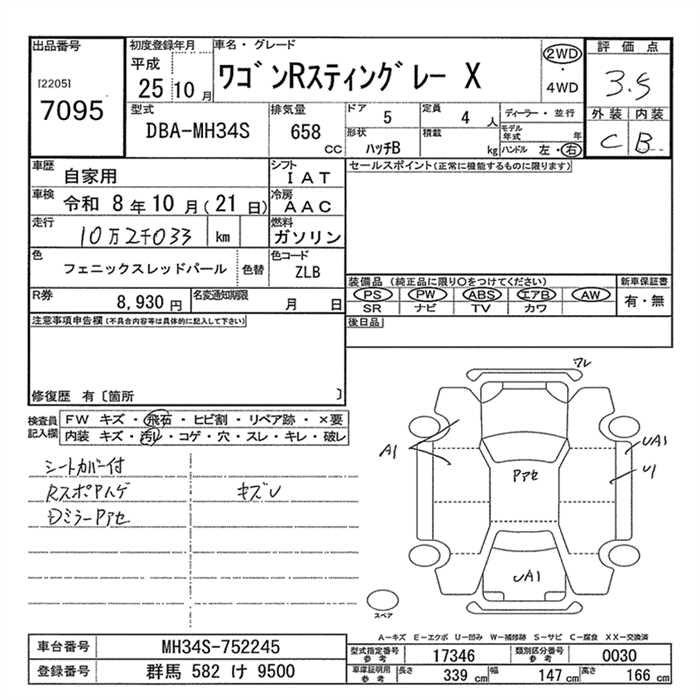 出品番号
[2205]
7095
初度登録年月
平成
25 10 月
車名・グレード
ワゴンRスティングレー X
2WD
・
4WD
評価点
3.5
外装 内装
C B
型式
DBA-MH34S
排気量
658
CC
ドア 5
定員 4 人
形状 ハッチB
積載 kg
ディーラー・並行
モデル年式 年
ハンドル 左・右
車歴 自家用
シフト IAT
車検 令和 8 年 10 月(21 日)
冷房 AAC
走行 10万2千033 km
燃料 ガソリン
色 フェニックスレッドパール 色替
色コード ZLB
R券 8,930 円
名変通知期限 月 日
セールスポイント(正常に機能するものに限ります)
装備品(純正品に限り〇をつけてください)
PS PW ABS エアB AW
SR ナビ TV カワ
新車保証書
有・無
後日品
注意事項申告欄(不具合内容等は具体的に記入して下さい)
修復歴 有〔箇所 〕
検査員記入欄
FW キズ・飛石・ヒビ割・リペア跡・×要
内装 キズ・汚レ・コゲ・穴・スレ・キレ・破レ
シートカバー付
RスポPハゲ キズU
DミラーPアセ
ワレ
A1
Pアセ
UA1
U1
UA1
スペア
A―キズ E―エクボ U―凹み W―補修跡 S―サビ C―腐食 XX―交換済
車台番号 MH34S-752245
登録番号 群馬 582 け 9500
型式指定番号 参考 17346
類別区分番号 参考 0030
車庫証明用 参考 長さ 339 cm 幅 147 cm 高さ 166 cm